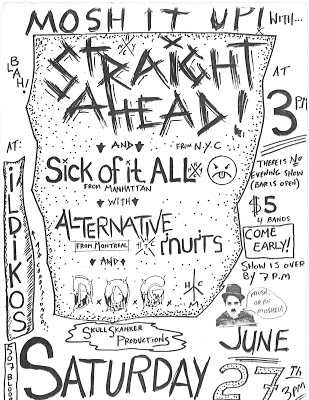 MOSH IT UP! WITH...
BLAH!
STRAIGHT
AHEAD!
AT
3 PM
AND FROM N.Y.C
Sick of it ALL
FROM MANHATTAN
WITH
ALTERNATIVE
FROM MONTREAL
AND
D.O.G.
H C
M
AT:
iLDIKOS
AIR CONDITIONED!
507 BLOO
THERE IS NO
EVENING SHOW
(BAR IS OPEN)
$5
4 BANDS
COME
EARLY!
SHOW IS OVER
BY 7 P.M
MOSH
OR BE
MOSHED!
SKULLSKANKER
PRODUCTIONS
JUNE
SATURDAY 27Th
3PM